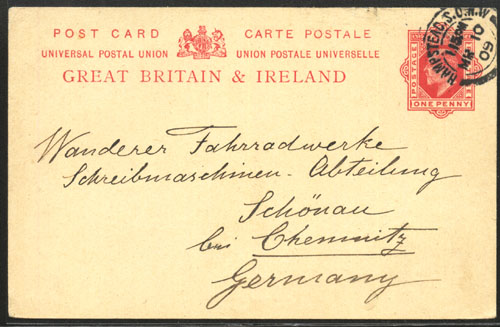 POST CARD CARTE POSTALE
UNIVERSAL POSTAL UNION UNION POSTALE UNIVERSELLE
GREAT BRITAIN & IRELAND
POSTAGE
ONE PENNY
HAMPSTEAD.S.O.N.W
MR 10
09
Wanderer Fahrradwerke
Schreibmaschinen-Abteilung
Schönau
bei Chemnitz
Germany